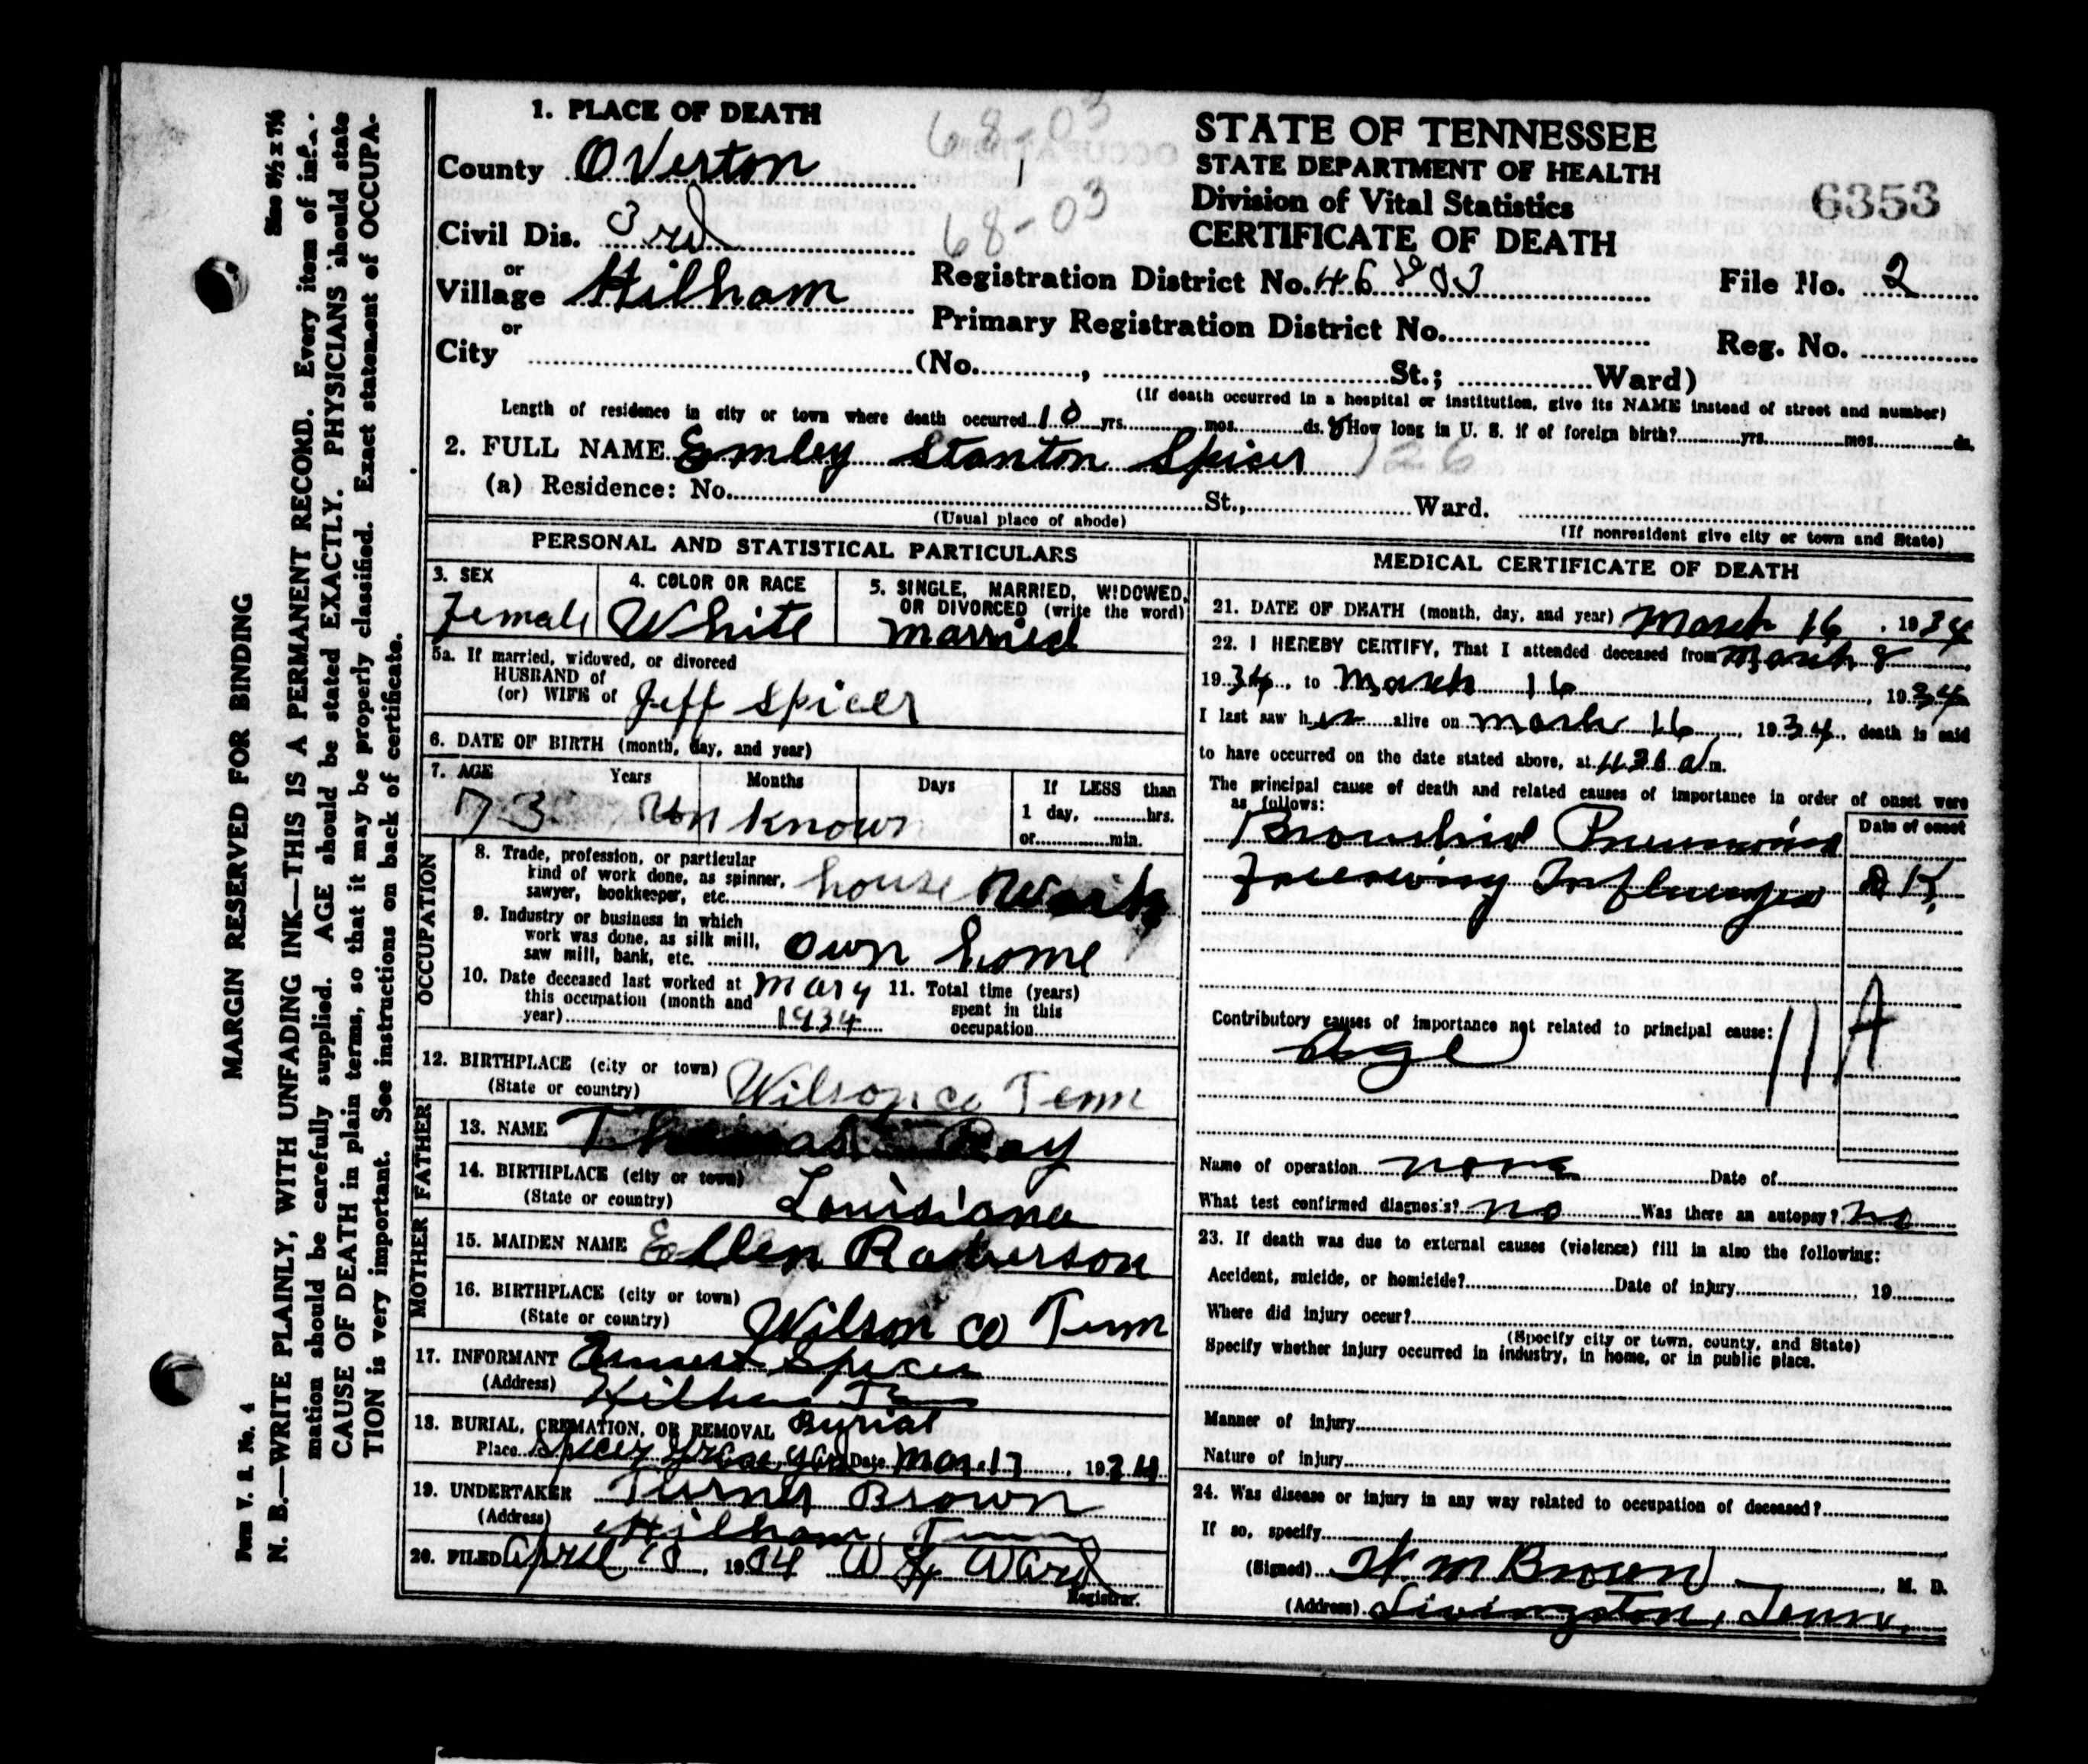 Form V. S. No. 4
Size 8½ x 7⅜
MARGIN RESERVED FOR BINDING
N. B.—WRITE PLAINLY, WITH UNFADING INK—THIS IS A PERMANENT RECORD. Every item of infor-
mation should be carefully supplied. AGE should be stated EXACTLY. PHYSICIANS should state
CAUSE OF DEATH in plain terms, so that it may be properly classified. Exact statement of OCCUPA-
TION is very important. See instructions on back of certificate.
STATE OF TENNESSEE
STATE DEPARTMENT OF HEALTH
Division of Vital Statistics
CERTIFICATE OF DEATH
6353
68-03
68-03
1. PLACE OF DEATH
County Overton
Civil Dis. 3rd
or
Village Hilham
or
City (No. , St.; Ward)
Registration District No.
File No. 2
Primary Registration District No.
Reg. No.
(If death occurred in a hospital or institution, give its NAME instead of street and number)
Length of residence in city or town where death occurred 10 yrs. mos. ds. How long in U. S. if of foreign birth? yrs. mos. ds.
2. FULL NAME Emley Stanton Spicer 126
(a) Residence: No. St., Ward.
(Usual place of abode) (If nonresident give city or town and State)
PERSONAL AND STATISTICAL PARTICULARS
3. SEX
Female
4. COLOR OR RACE
White
5. SINGLE, MARRIED, WIDOWED, OR DIVORCED (write the word)
Married
5a. If married, widowed, or divorced
HUSBAND of
(or) WIFE of Jeff Spicer
6. DATE OF BIRTH (month, day, and year)
7. AGE Years Months Days If LESS than
1 day, hrs.
or min.
73 Unknown
OCCUPATION
8. Trade, profession, or particular
kind of work done, as spinner,
sawyer, bookkeeper, etc. house Work
9. Industry or business in which
work was done, as silk mill,
saw mill, bank, etc. own home
10. Date deceased last worked at
this occupation (month and
year) Mary 1934
11. Total time (years)
spent in this
occupation
12. BIRTHPLACE (city or town)
(State or country) Wilson co Tenn
FATHER
13. NAME Thomas Ray
14. BIRTHPLACE (city or town)
(State or country) Louisiana
MOTHER
15. MAIDEN NAME Ellen Raberson
16. BIRTHPLACE (city or town)
(State or country) Wilson co Tenn
17. INFORMANT Ernest Spicer
(Address) Hilham Tenn
18. BURIAL, CREMATION, OR REMOVAL Burial
Place Spicer Grave yard Date Mar. 17, 1934
19. UNDERTAKER Turner Brown
(Address) Hilham, Tenn
20. FILED April 10, 1934 Ward
Registrar.
MEDICAL CERTIFICATE OF DEATH
21. DATE OF DEATH (month, day, and year) March 16, 1934
22. I HEREBY CERTIFY, That I attended deceased from March 8
1934, to March 16, 1934
I last saw her alive on March 16, 1934, death is said
to have occurred on the date stated above, at m.
The principal cause of death and related causes of importance in order of onset were
as follows:
Date of onset
Bronchial Pneumonia
Following Influenza
Contributory causes of importance not related to principal cause:
11A
Age
Name of operation none Date of
What test confirmed diagnosis? no Was there an autopsy? no
23. If death was due to external causes (violence) fill in also the following:
Accident, suicide, or homicide? Date of injury , 19
Where did injury occur?
(Specify city or town, county, and State)
Specify whether injury occurred in industry, in home, or in public place.
Manner of injury
Nature of injury
24. Was disease or injury in any way related to occupation of deceased?
If so, specify
(Signed) W. M Brown, M. D.
(Address) Livingston, Tenn.